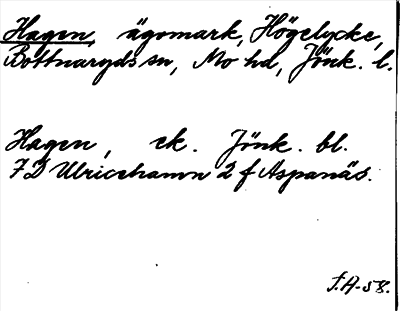 Hagen, ägomark, Högelycke,
Bottnaryds sn, Mo hd, Jönk. l.
Hagen, ek. Jönk. bl.
7D Ulricehamn 2 f Aspanäs.
f.A-58.